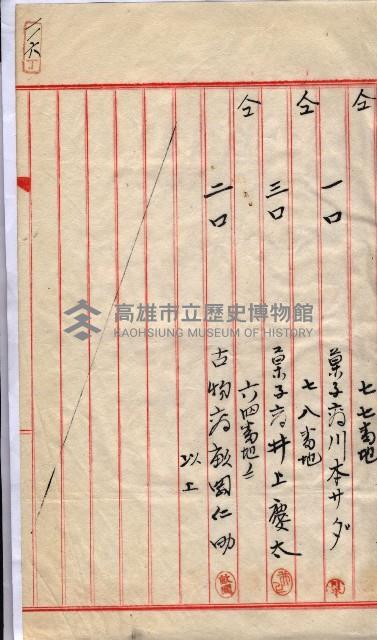 仝　七七番地
一口　菓子商川本サダ
仝　七八番地
三口　菓子商井上慶太
仝　六四番地ノ二
二口　古物商敵国仁助
以上
高雄市立歷史博物館
KAOHSIUNG MUSEUM OF HISTORY